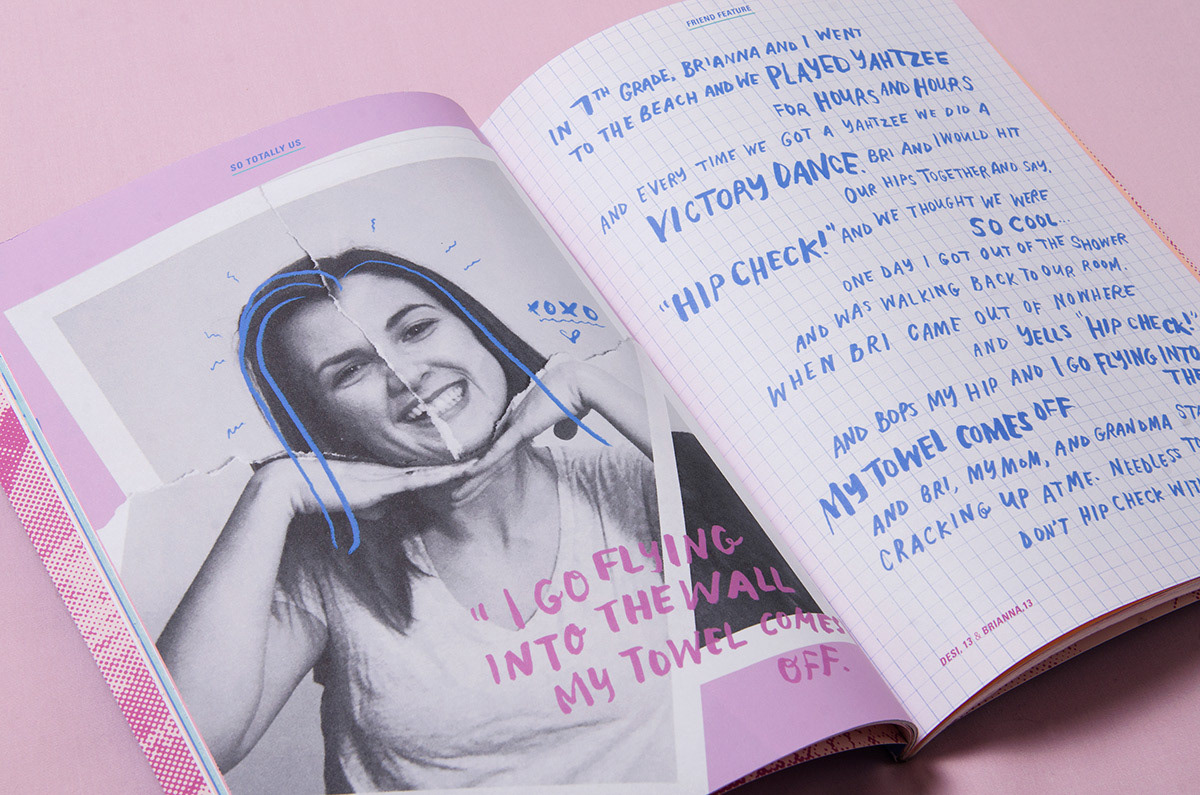 SO TOTALLY US
XOXO
"I GO FLYING
INTO THE WALL
MY TOWEL COMES
OFF.
FRIEND FEATURE
IN 7TH GRADE, BRIANNA AND I WENT
TO THE BEACH AND WE PLAYED YAHTZEE
FOR HOURS AND HOURS
AND EVERY TIME WE GOT A YAHTZEE WE DID A
VICTORY DANCE. BRI AND I WOULD HIT
OUR HIPS TOGETHER AND SAY,
"HIP CHECK!" AND WE THOUGHT WE WERE
SO COOL...
ONE DAY I GOT OUT OF THE SHOWER
AND WAS WALKING BACK TO OUR ROOM.
WHEN BRI CAME OUT OF NOWHERE
AND YELLS "HIP CHECK!"
AND BOPS MY HIP AND I GO FLYING INTO
THE
MY TOWEL COMES OFF
AND BRI, MY MOM, AND GRANDMA
CRACKING UP AT ME. NEEDLESS
DON'T HIP CHECK
DESI, 13 & BRIANNA, 13